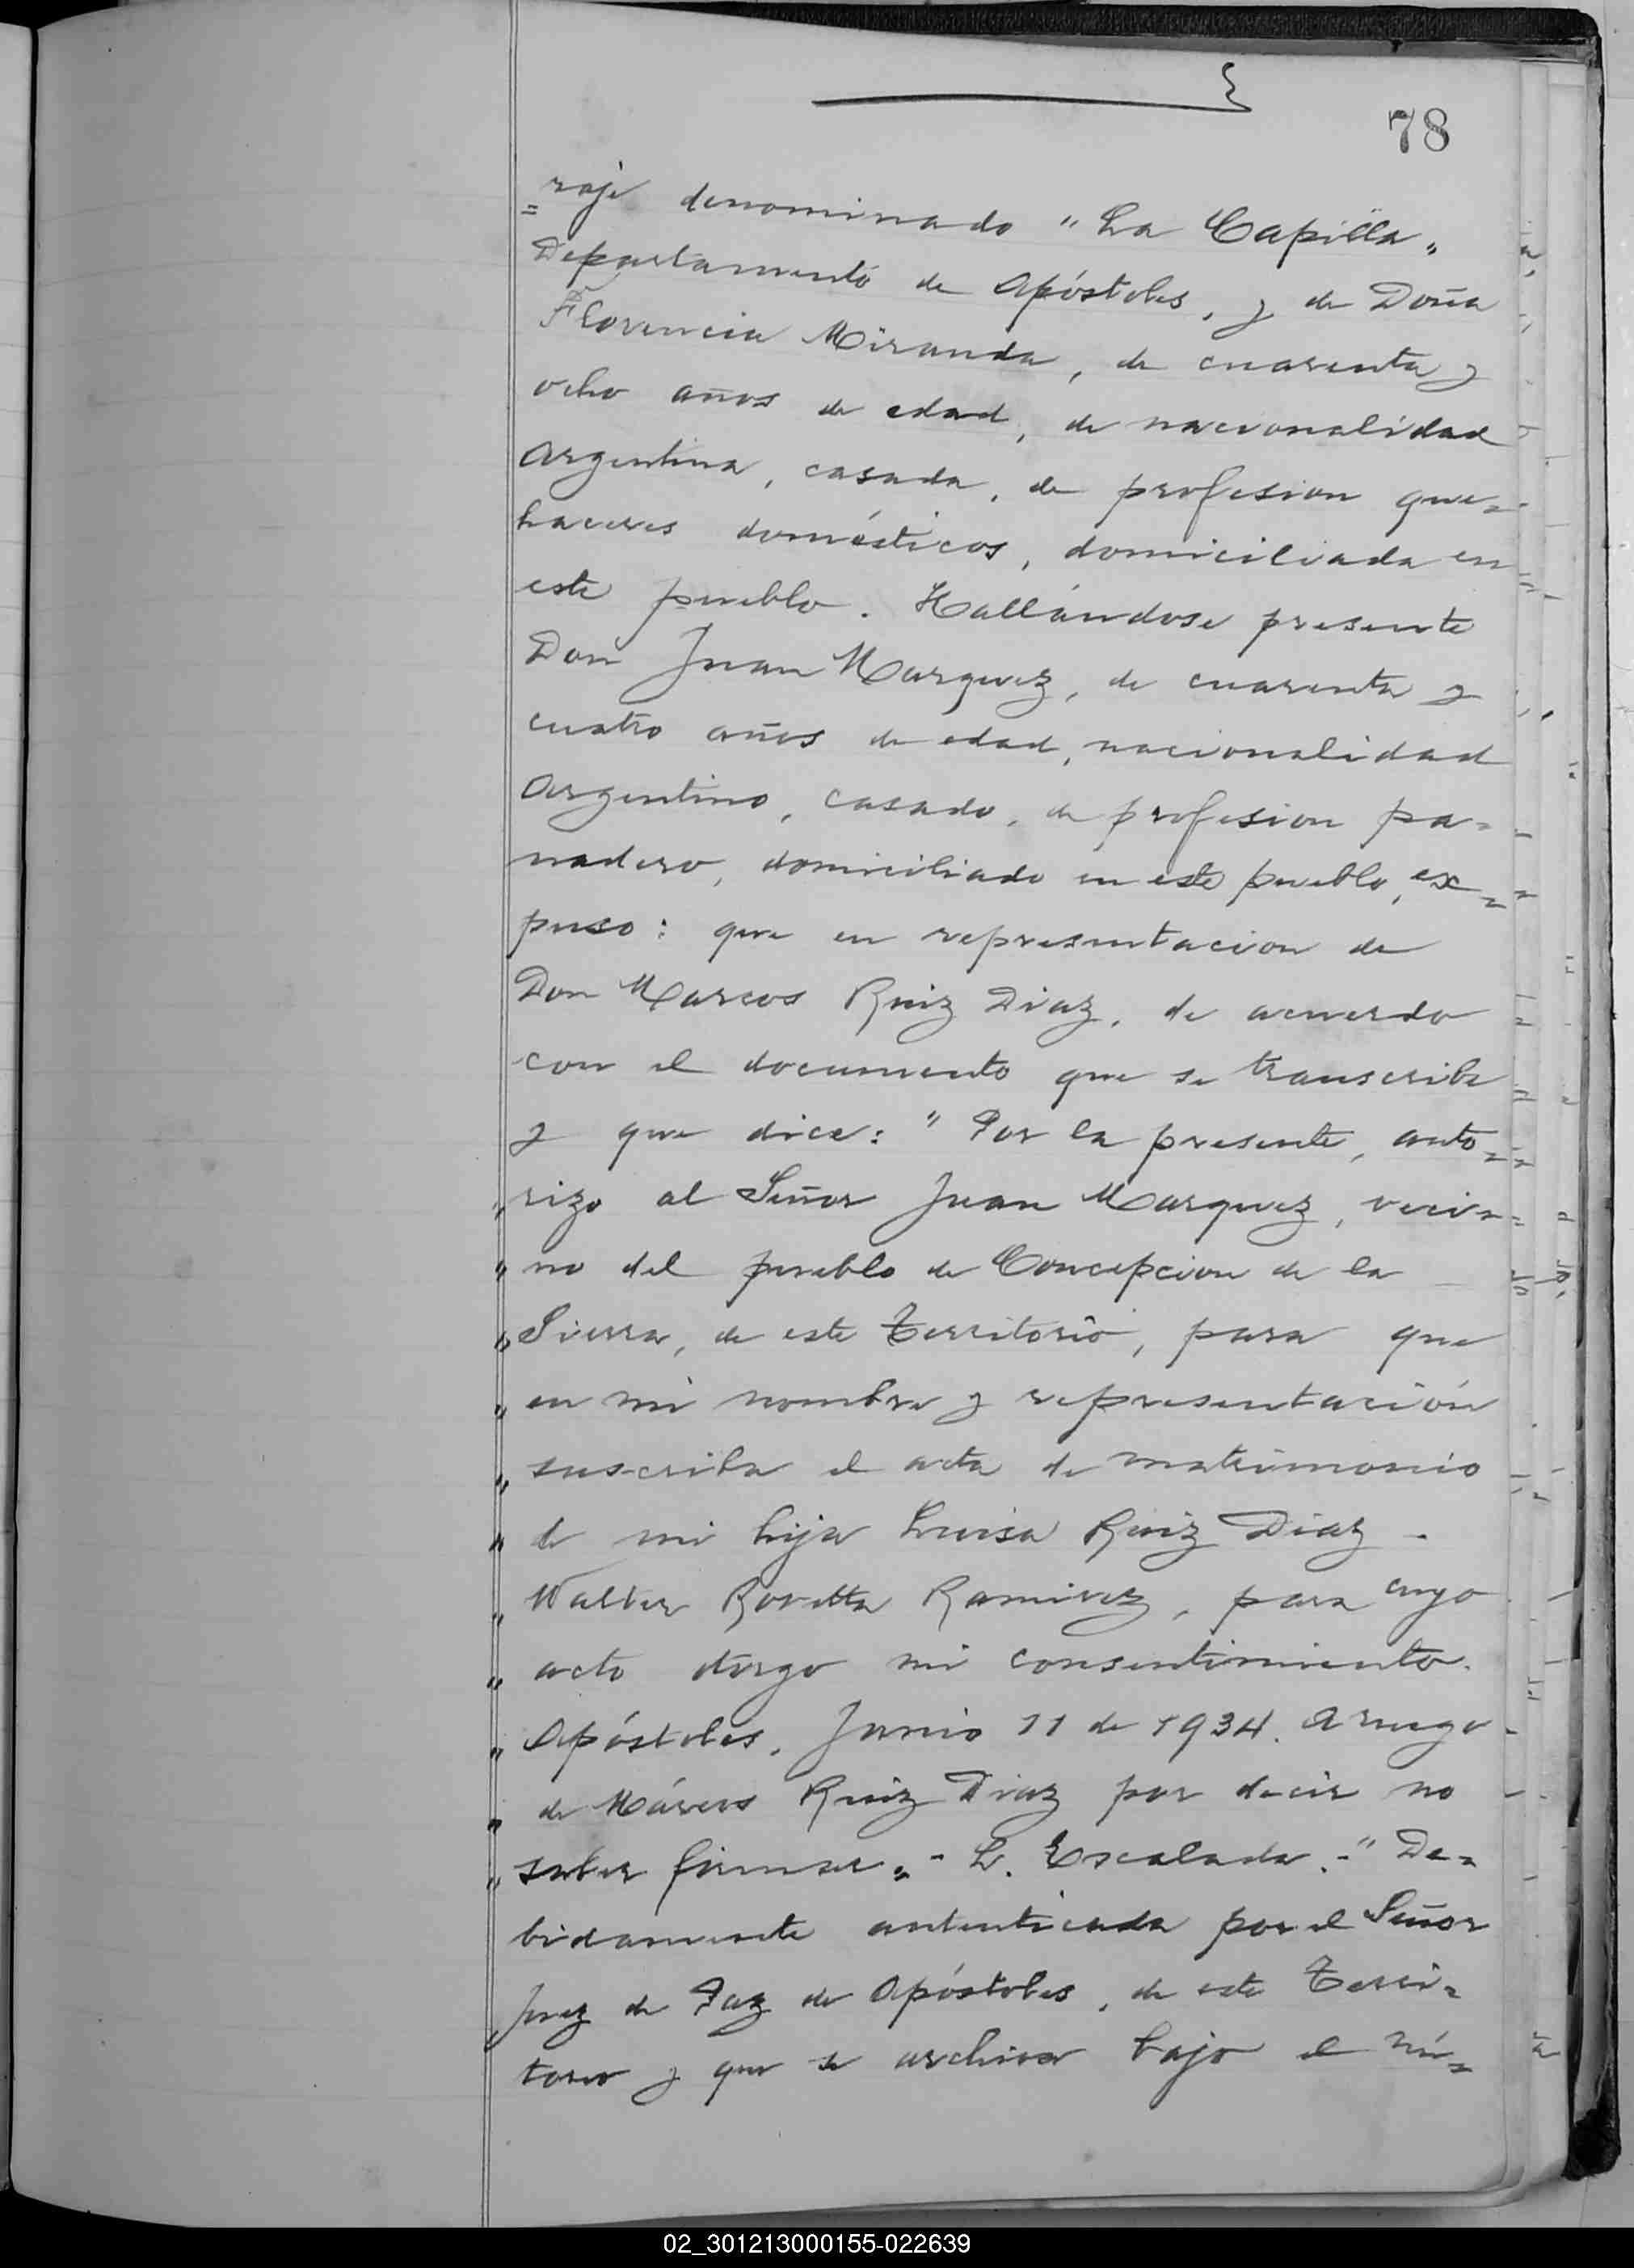 78
=raje denominado "La Capilla"
Departamento de Apóstoles, y de Doña
Florencia Miranda, de cuarenta y
ocho años de edad, de nacionalidad
Argentina, casada, de profesion que=
haceres domésticos, domiciliada en
este pueblo. Hallándose presente
Don Juan Marquez, de cuarenta y
cuatro años de edad, nacionalidad
Argentino, casado, de profesion pa=
nadero, domiciliado en este pueblo, ex=
puso: que en representacion de
Don Marcos Ruiz Diaz, de acuerdo
con el documento que se transcribe
y que dice: "Por la presente, auto=
"rizo al Señor Juan Marquez, veci=
"no del pueblo de Concepcion de la
"Sierra, de este Territorio, para que
"en mi nombre y representación
"suscriba el acta de matrimonio
"de mi hija Luisa Ruiz Diaz -
"Walter Rovetta Ramirez, para cuyo
"acto otorgo mi consentimiento.
"Apóstoles, Junio 11 de 1934. A ruego
"de Márcos Ruiz Diaz por decir no
"saber firmar".- L. Escalada.-" De=
bidamente autenticada por el Señor
Juez de Paz de Apóstoles, de este Terri=
torio y que se archiva bajo el nú=
02_301213000155-022639